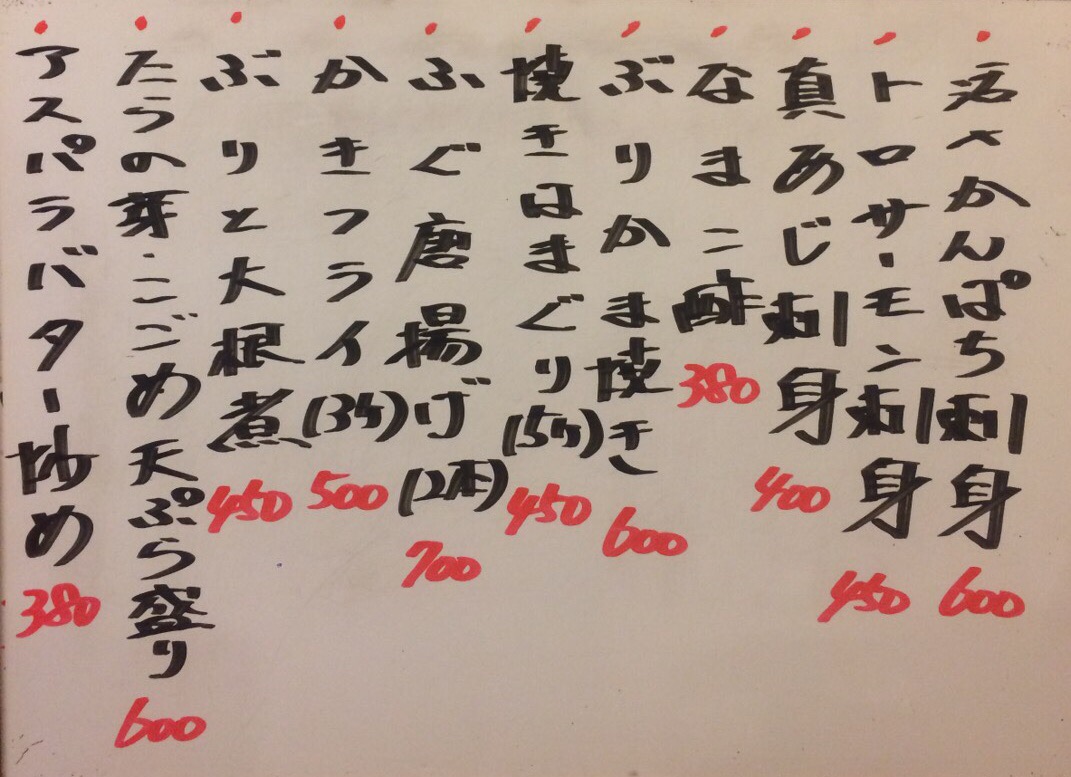 活〆かんぱち刺身 600
トロサーモン刺身 450
真あじ刺身 400
なまこ酢 380
ぶりかま焼き 600
焼きはまぐり(5ケ) 450
ふぐ唐揚げ(2本) 700
かきフライ(3ケ) 500
ぶりと大根煮 450
たらの芽・こごめ天ぷら盛り 600
アスパラバター炒め 380